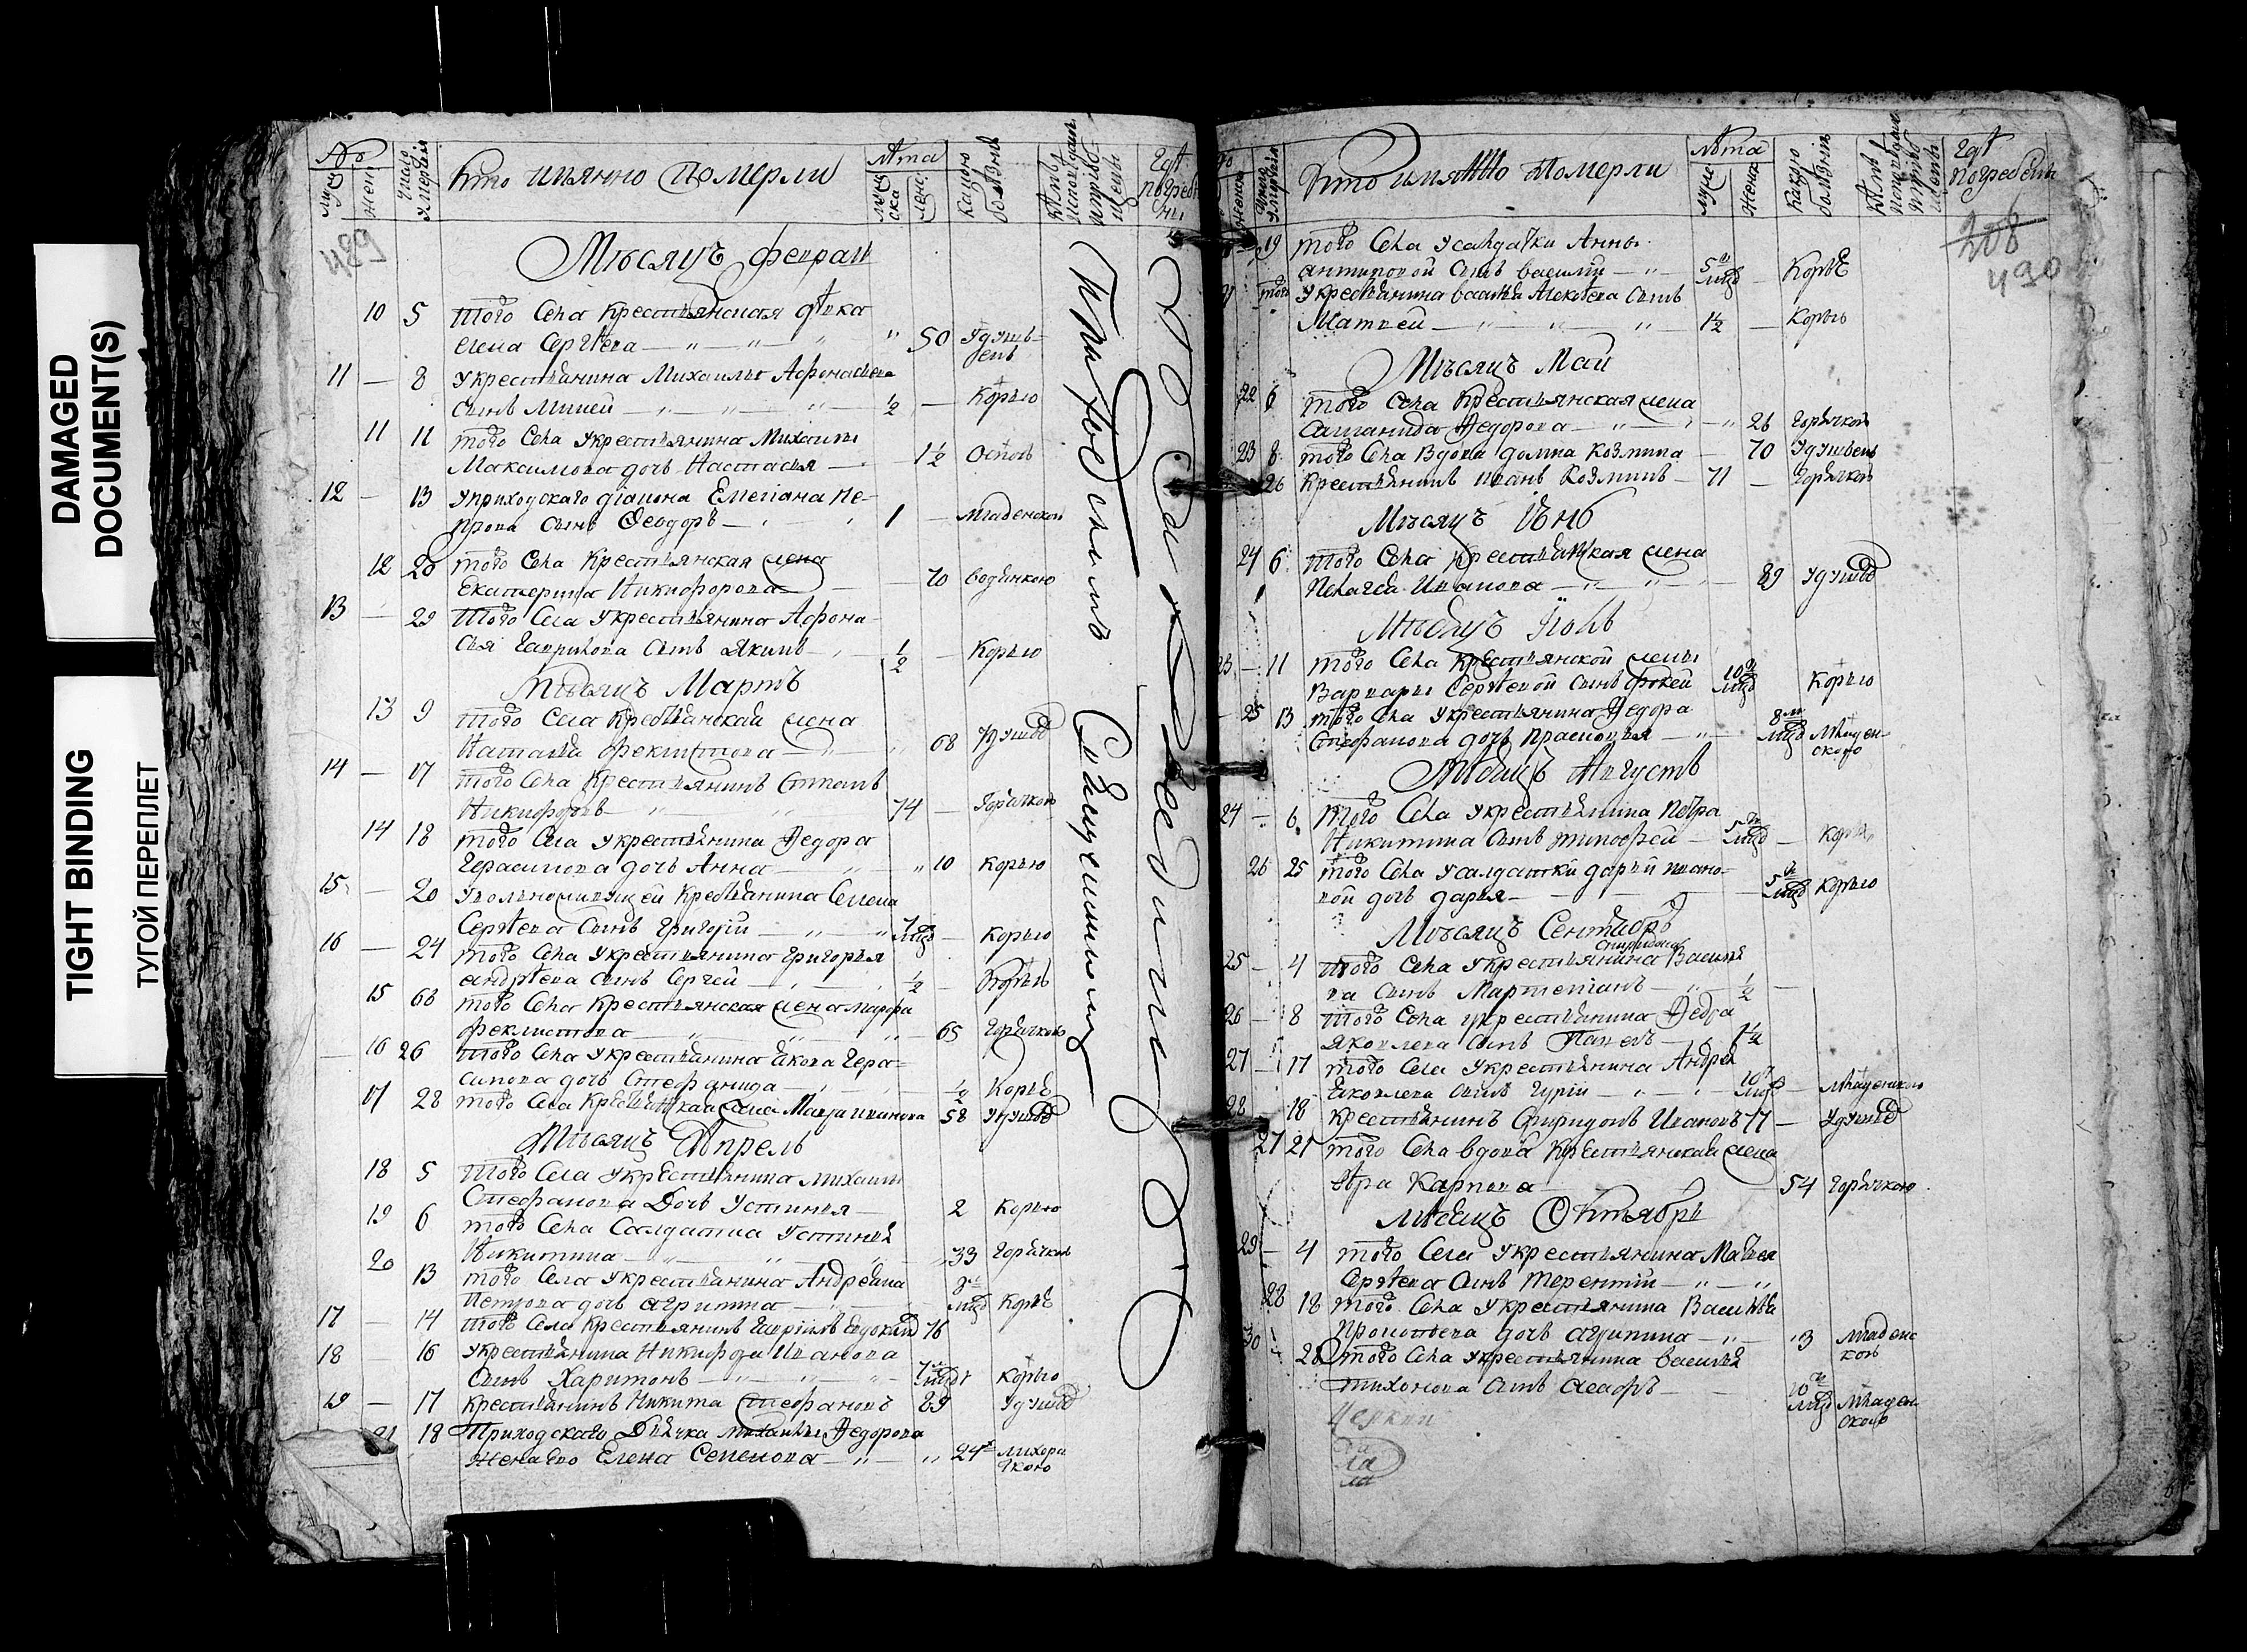 DAMAGED
DOCUMENT(S)
TIGHT BINDING
ТУГОЙ ПЕРЕПЛЕТ
№
муж
жен
Число
умерш
Кто имянно померли
лѣта
муже
ска
жен
какою
болѣзнь
Кѣмъ
исповѣдан
Гдѣ
погребе
ны
489
Мѣсяцъ феврал
10 5 того села крестьянская дѣвка
елена Сергѣева 50 Удушь-
емъ
11 — 8 У крестьянина Михаилы Афонасьева
сынъ Миней ½ — Корью
11 11 того села у крестьянина Михаилы
Максимова дочь Настасья 1½ Оспою
12 — 13 у приходскаго діакона Емеліана Пе-
трова сынъ Феодоръ 1 — младенскою
12 20 того села Крестьянская жена
Екатерина Никифорова 70 водянкою
13 — 29 того села у крестьянина Афона
сья Гаврилова сынъ Якимъ ½ — Корью
Мѣсяцъ Мартъ
13 9 того села Крестьянская жена
Наталья феклистова 68 Удушье
14 — 17 того села Крестьянинъ Степанъ
Никифоровъ 74 — Горячкою
14 18 того села у крестьянина Федора
Герасимова дочь Анна 10 корью
15 — 20 Крестьянина Семена
Сергѣева сынъ Григорій 7 мѣс — Корью
16 — 24 того села у крестьянина Григорья
андрѣева сынъ Сергей ½ — Корью
15 66 того села крестьянская жена марфа
феклистова 65 Горячкою
16 26 того села у крестьянина Якова Гера-
симова дочь Стефанида ½ Корью
17 28 того села Крестьянская жена Мавра иванова 58 Удушье
Мѣсяцъ Апрель
18 5 того села у крестьянина михаилы
Стефанова Дочь Устинья 2 Корью
19 6 того села Салдатка Устинья
Никитина 33 Горячкою
20 13 того села у крестьянина Андреяна
Петрова дочь агрипина 8 мѣс Корью
17 — 14 того села Крестьянинъ Гаврілъ 76
18 — 16 у крестьянина Никифора Иванова
сынъ Харитонъ 7 мѣс Корью
19 — 17 крестьянинъ Никита Стефановъ 89 Удушье
21 18 Приходскаго Дьячка михайлы Федорова
жена его Елена Семенова 24 лихора
дкою
Кто имянно Померли
лѣта
муже
Женъ
Какою
болѣзнію
Гдѣ
погребены
208
490
19 того села у салдатки Анны
антиповой сынъ василий 5 мѣс — Корью
у крестьянина василья Алексѣева сынъ
Матвей 1½ — Корью
Мѣсяцъ Май
22 6 того села Крестьянская жена
Саламанида Федорова 26 Горячкою
23 8 того села Вдова домна Козмина 70 Удушьемъ
26 Крестьянинъ иванъ Козминъ 71 — Горячкою
Мѣсяцъ Іюнь
24 6 того села Крестьянская жена
Пелагея Иванова 89 Удушье
Мѣсяцъ Іюль
23 — 11 того села Крестьянской жены
Варвары Сергѣевой сынъ фокей 10 мѣс Корью
25 13 того села у крестьянина Федора
Стефанова дочь прасковья 8 мѣс Младен-
скою
Мѣсяцъ Августъ
24 — 6 того села у крестьянина Петра
Никитина сынъ тимофей 5 мѣс — Корью
26 25 того села у салдатки дарьи ивано-
вой дочь дарья 5 мѣс Корью
Мѣсяцъ Сентябрь
спиридона
25 — 4 того села у крестьянина Василье
ва сынъ Мартеміанъ ½ —
26 — 8 того села у крестьянина Федора
Яковлева сынъ Павелъ 1½
27 — 17 того села у крестьянина Андрея
Яковлева сынъ Гурій 10 мѣс — Младенскою
28 18 крестьянинъ Спиридонъ Ивановъ 77 — Удушье
27 21 того села вдова Крестьянская жена
Карпова 54 Горячкою
Мѣсяцъ Октябрь
29 — 4 того села у крестьянина Матвея
Сергѣева сынъ терентій
28 18 того села у крестьянина Василья
Прокопьева дочь агрипина 3 младенс
кою
30 28 того села у крестьянина василья
тихонова сынъ 10 мѣс Младен
скою